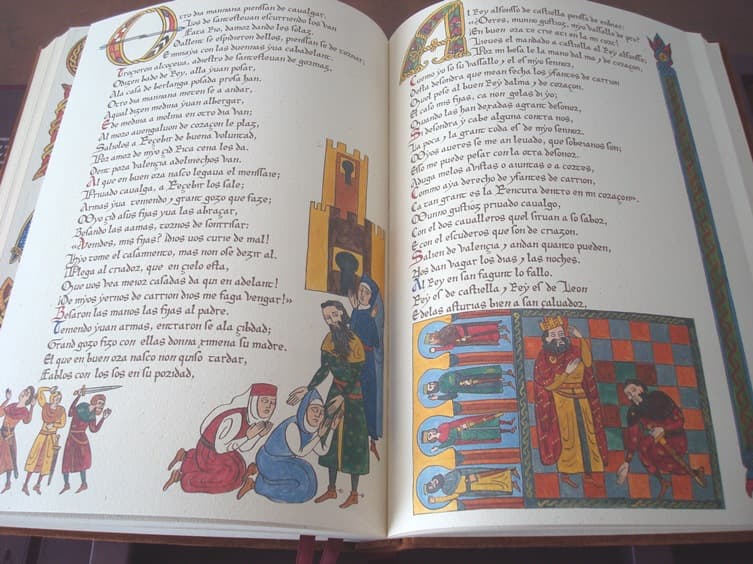 Otro dia mannana pienssan de caualgar,
Los de santesteuan escurriendo los van
Fata Rio damor dando les solaz.
Dallent se espidieron dellos, pienssan se de tornar;
E minaya con las duennas yua cabadelant.
Trocieron alcoceua, adiestro de santesteuan de gormaz,
O dizen bado de Rey, alla yuan posar,
Ala casa de berlanga posada presa han.
Otro dia mannana meten se a andar,
A qual dizen medina yuan albergar,
E de medina a molina en otro dia van;
Al moro auengaluon de coraçon le plaz,
Saliolos a Reçebir de buena voluntad,
Por amor de myo çid Rica cena les da.
Dent para valençia adelinechos van.
Al que en buen ora nasco legaua el menssaie;
Priuado caualga, a Reçebir los sale;
Armas yua teniendo y grant gozo que faze;
Myo çid a sus fijas yua las abraçar,
Besando las a amas, tornos de sonrrisar:
«¿Venides, mis fijas? ¡Dios uos curie de mal!
Hyo tome el casamiento, mas non ose dezir al.
Plega al criador, que en çielo esta,
Que uos vea meior casadas daqui en adelant!
¡De myos yernos de carrion dios me faga vengar!»
Besaron las manos las fijas al padre.
Teniendo yuan armas, entraron se a la çibdad;
Grand gozo fizo con ellas donna ximena su madre.
El que en buen ora nasco non quiso tardar,
Fablos con los sos en su poridad,
Al Rey alfonsso de castiella penssó de enbiar:
«¿O eres, munno gustioz, myo vassallo de pro?
En buen ora te crie a ti en la mi cort!
Lieues el mandado a castiella al Rey alfonsso;
Por mi besa le la mano dalma y de coraçon,
Cuemo yo so su vassallo y el es myo sennor,
Desta desondra que mean fecha los yfantes de carrion
Quel pese al buen Rey dalma y de coraçon.
El caso mis fijas, ca non gelas di yo;
Quando las han dexadas agrant desonor,
Si desondra y cabe alguna contra nos,
La poca y la grant toda es de myo sennor.
Myos aueres se me an leuado, que sobeianos son;
Esso me puede pesar con la otra desonor.
Aduga melos avistas o aiuntas o a cortes,
Commo aya derecho de yfantes de carrion,
Ca tan grant es la Rencura dentro en mi coraçon».
Munno gustioz priuado caualgo,
Con el dos caualleros quel siruan a so sabor,
E con el escuderos que son de criazon.
Salien de valençia y andan quanto pueden,
Nos dan vagar los dias y las noches.
Al Rey en san fagunt lo fallo.
Rey es de castiella y Rey es de Leon
E delas asturias bien a san çaluador,